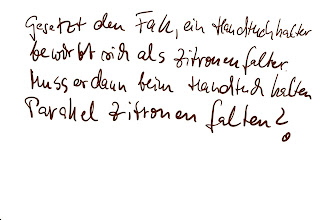 Gesetzt den Fall, ein Handtuchhalter
bewirbt sich als Zitronenfalter
Muss er dann beim Handtuch halten
Parallel Zitronen falten?